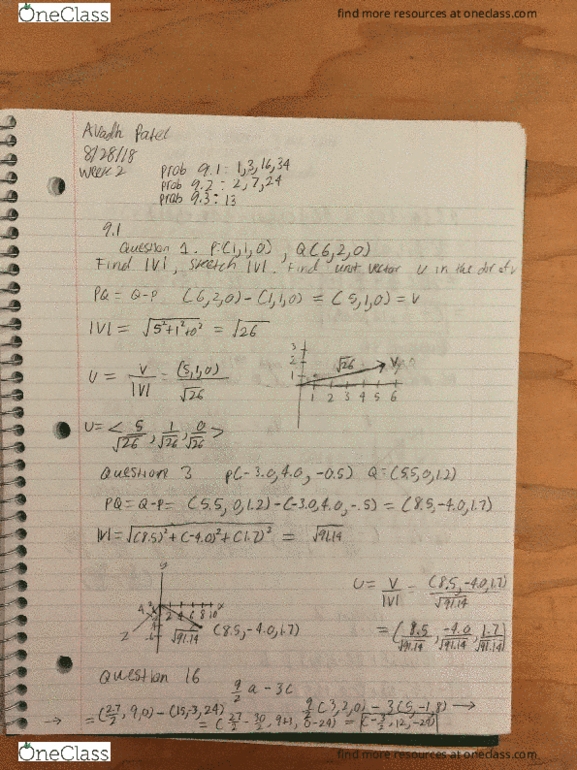 OneClass
find more resources at oneclass.com
Avadh Patel
8/28/18
Week 2
prob 9.1: 1,3,16,34
prob 9.2: 2,7,24
prob 9.3: 13
9.1
Question 1. P:(1,1,0), Q(6,2,0)
Find |V|, sketch |V|. Find unit vector U in the dir of v
PQ = Q-P (6,2,0)-(1,1,0) = (5,1,0) = V
|V| = √5²+1²+0² = √26
U = V/|V| = (5,1,0)/√26
3
2
1
√26 V
1 2 3 4 5 6
U = < 5/√26, 1/√26, 0/√26 >
Question 3 P(-3.0,4.0,-0.5) Q=(5.5,0,1.2)
PQ=Q-P= (5.5,0,1.2)-(-3.0,4.0,-.5) = (8.5,-4.0,1.7)
|V|=√(8.5)²+(-4.0)²+(1.7)² = √91.14
y
x
2 4 6 8 10
z
√91.14 (8.5,-4.0,1.7)
U = V/|V| = (8.5,-4.0,1.7)/√91.14
= (8.5/√91.14, -4.0/√91.14, 1.7/√91.14)
Question 16
9/2 a - 3c
9/2 (3,2,0) - 3(5,-1,8) →
→ =(27/2, 9,0)-(15,-3,24) = (27/2 - 30/2, 9+3, 0-24) = (-3/2, 12, -24)
OneClass
find more resources at oneclass.com